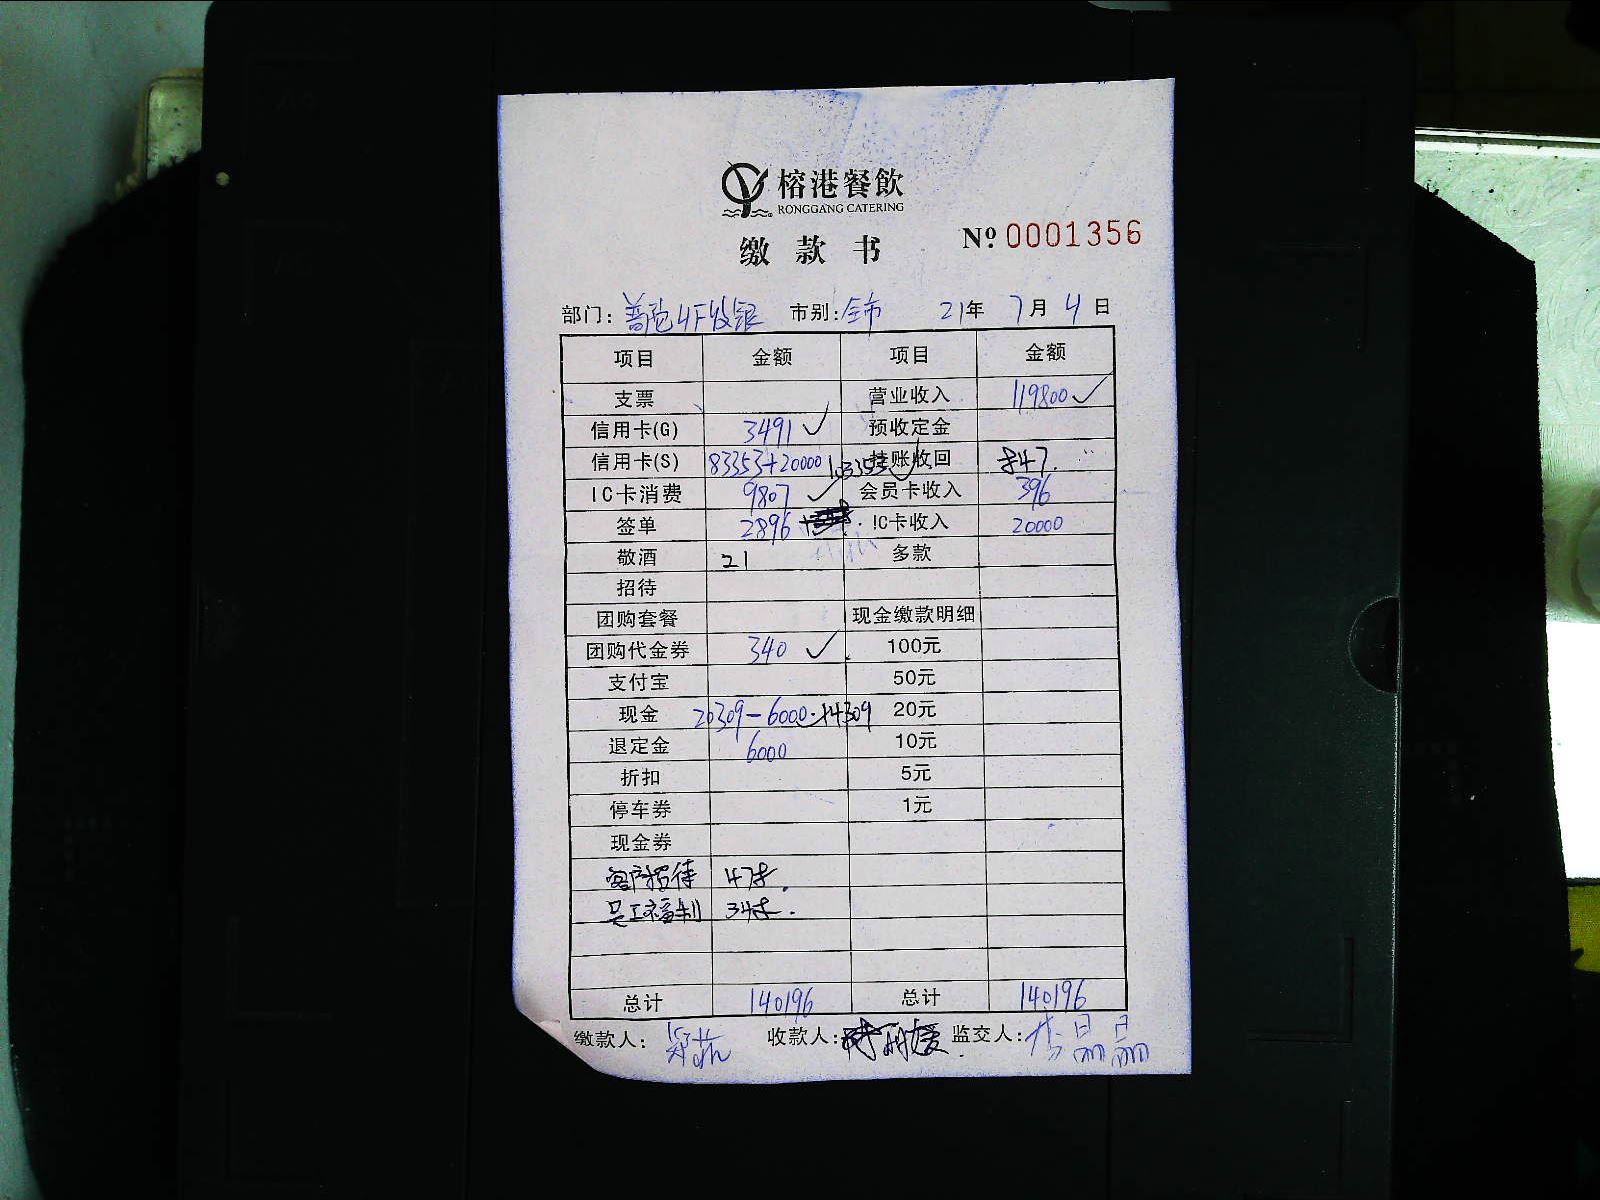 榕港餐飲
RONGGANG CATERING
缴款书 Nº 0001356
部门: 普陀4F收银 市别: 全市 21年 7月 4日
项目 金额 项目 金额
支票 营业收入 119800
信用卡(G) 3491 预收定金
信用卡(S) 83353+20000 103353 挂账收回 847.
IC卡消费 9807 会员卡收入 396
签单 2896 IC卡收入 20000
敬酒 21 多款
招待
团购套餐 现金缴款明细
团购代金券 340 100元
支付宝 50元
现金 20309-6000. 14309 20元
退定金 6000 10元
折扣 5元
停车券 1元
现金券
客户招待
员工福利
总计 140196 总计 140196
缴款人: 收款人: 监交人: 李晶晶